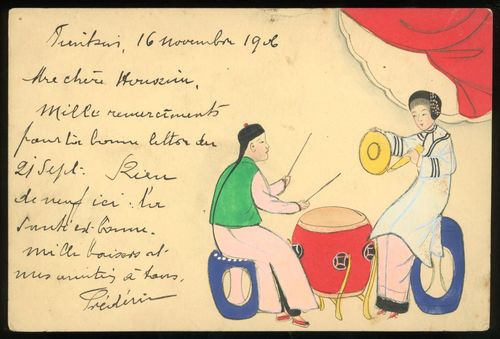 Tientsin, 16 novembre 1906
Ma chère Housein,
Mille remerciments
pour ta bonne lettre du
21 Sept. Rien
de neuf ici. La
santé est bonne.
Mille baisers et
mes amitiés à tous,
Frédéric